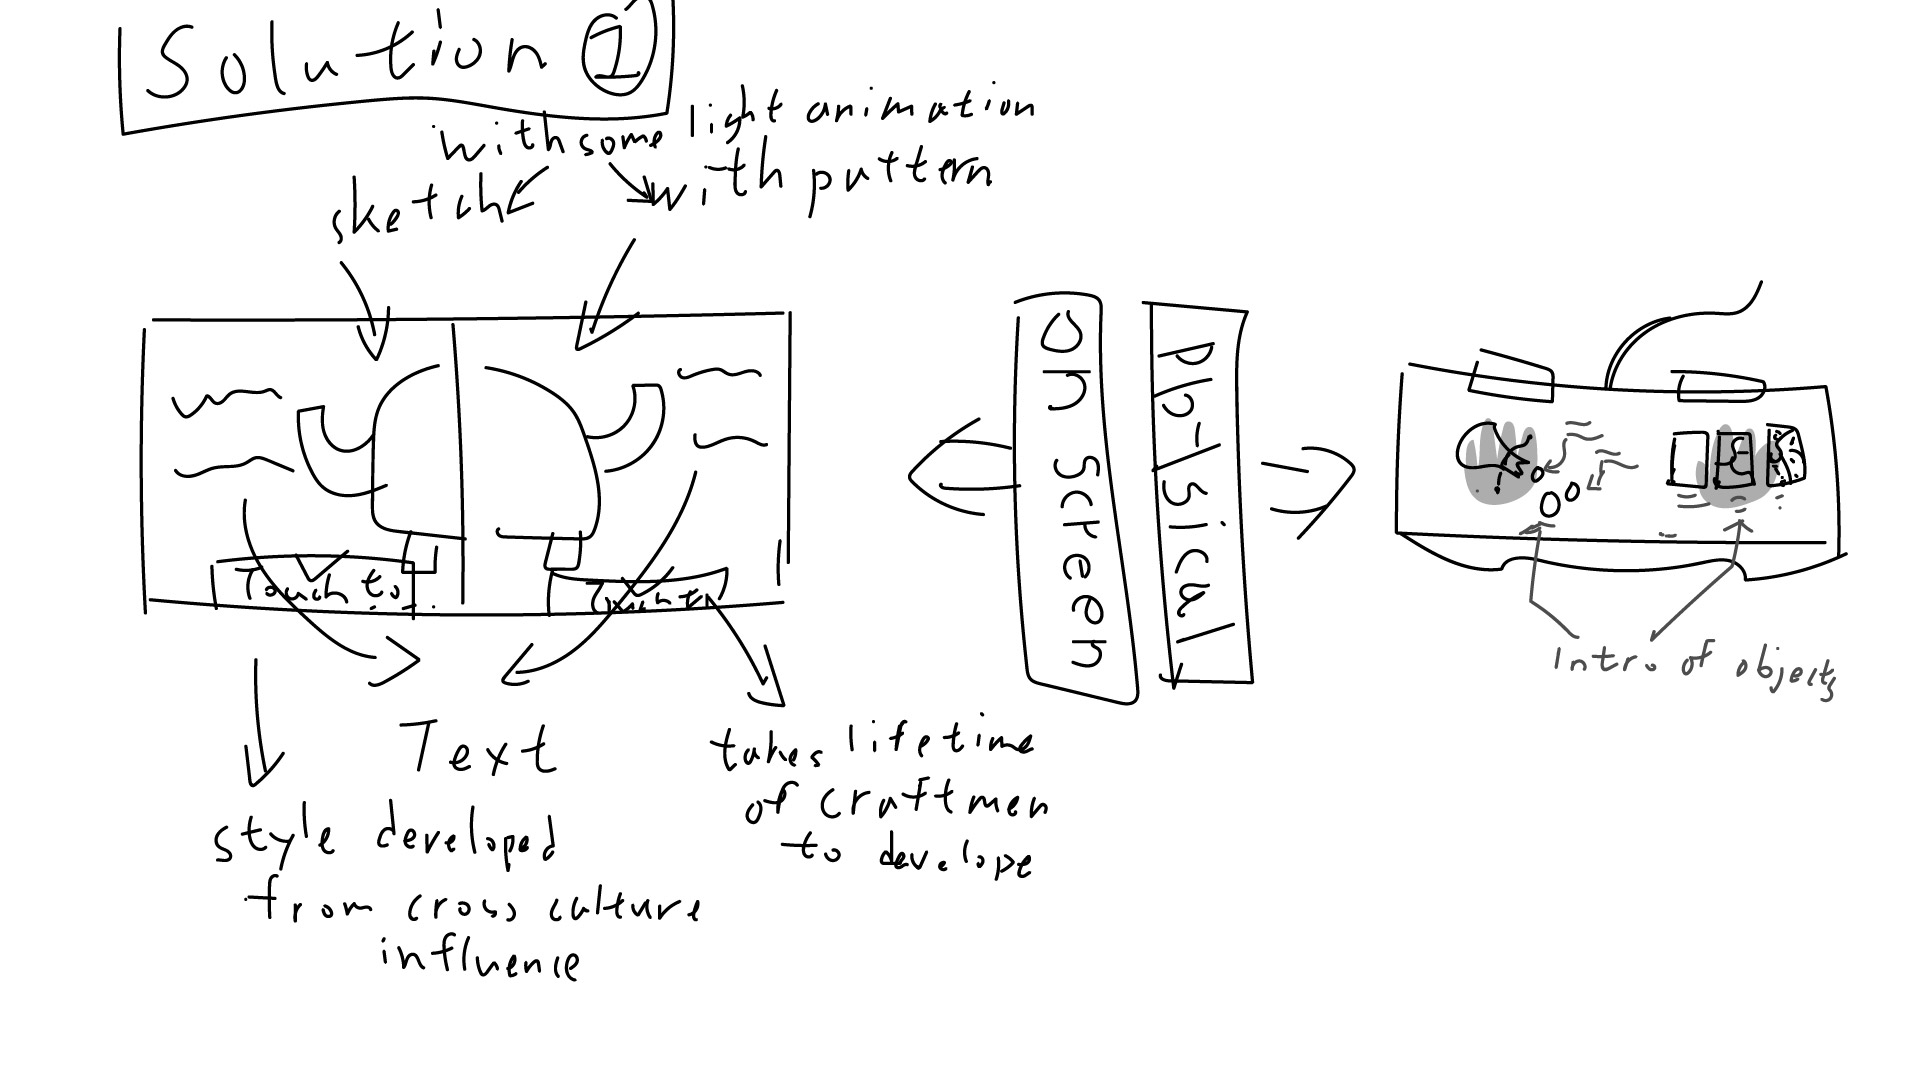 Solution ①
with some light animation
sketch
with puttern
Touch to
...
Touch t
Text
style developed
from cross culture
influence
takes lifetime
of craftmen
to develope
On Screen
physical
Intro of objects